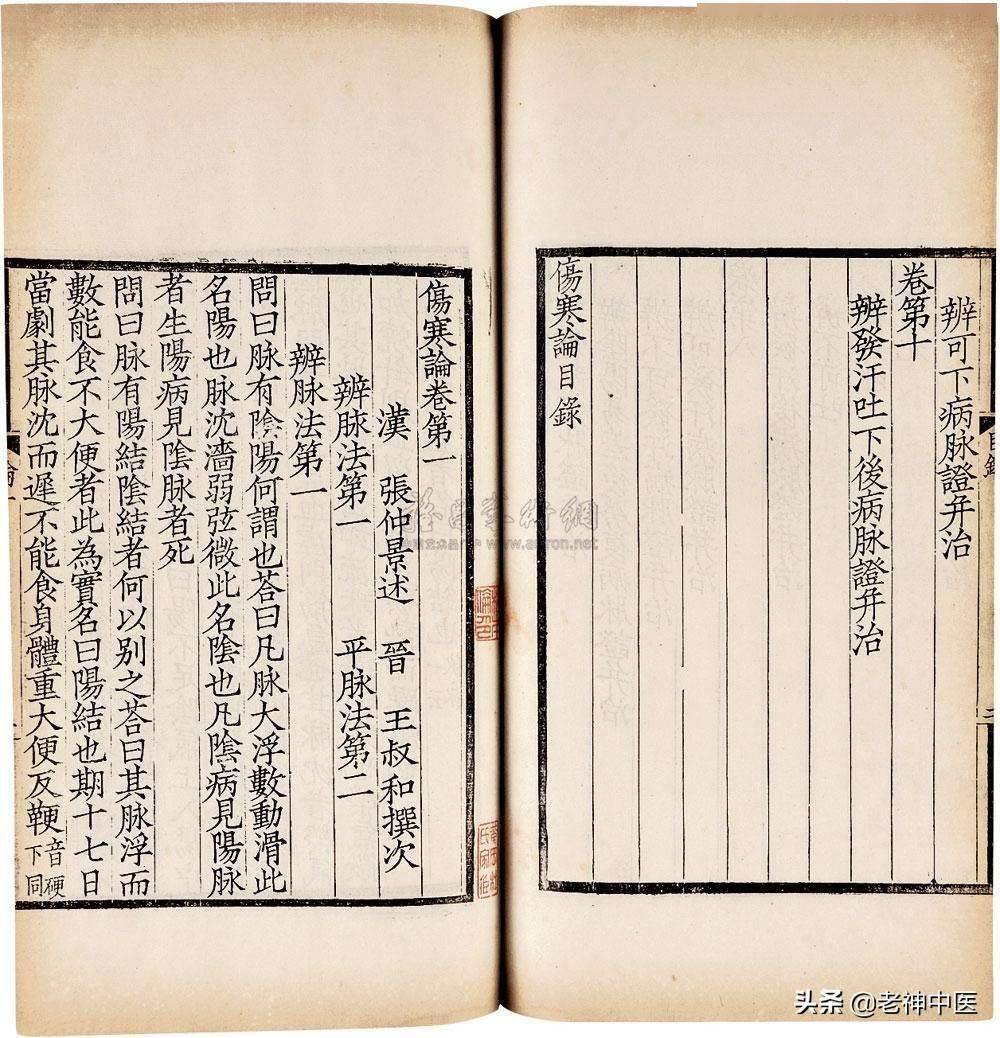 辨可下病脉證并治
卷第十
辨發汗吐下後病脉證并治
傷寒論目錄
傷寒論卷第一
漢 張仲景述 晉 王叔和撰次
辨脉法第一 平脉法第二
辨脉法第一
問曰脉有陰陽何謂也荅曰凡脉大浮數動滑此
名陽也脉沈濇弱弦微此名陰也凡陰病見陽脉
者生陽病見陰脉者死
問曰脉有陽結陰結者何以别之荅曰其脉浮而
數能食不大便者此為實名曰陽結也期十七日
當劇其脉沈而遲不能食身體重大便反鞕音硬下同
www.aaron.net
头条 @老神中医